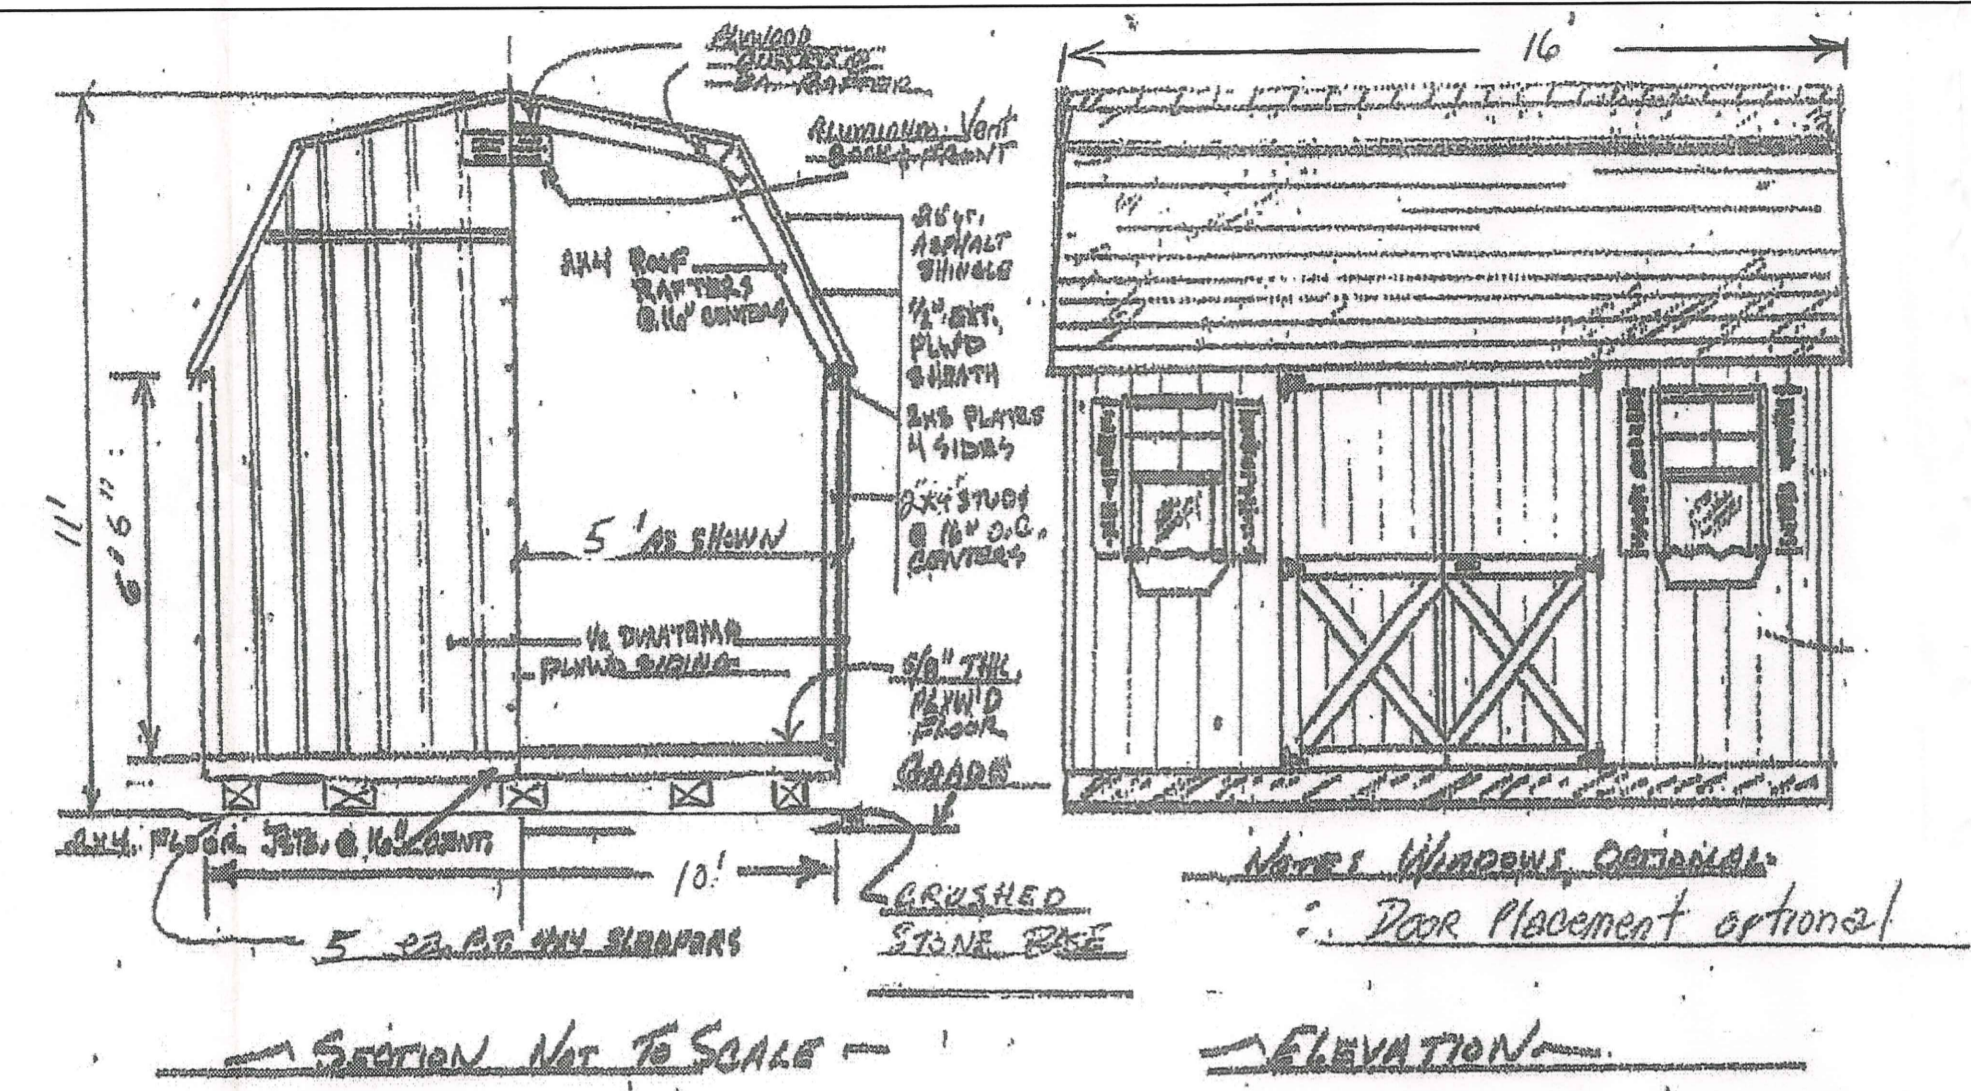 PLYWOOD
GUSSETS @
EA. RAFTER
ALUMINUM Vent
BACK & FRONT
25 yr.
ASPHALT
SHINGLE
2X4 ROOF
RAFTERS
@ 16" CENTERS
1/2" EXT.
PLWD
SHEATH
2X3 PLATES
4 SIDES
2"X4" STUDS
@ 16" O.C.
CENTERS
11'
6'6"
5' AS SHOWN
1/2 DURATEMP
PLYWD SIDING
5/8" THK.
PLYW'D
FLOOR
GRADE
2X4 FLOOR JTS. @ 16" CENT.
10'
5 ea. P.T. 4X4 SLEEPERS
CRUSHED
STONE BASE
SECTION NOT TO SCALE
16'
NOTES WINDOWS OPTIONAL
: DOOR Placement optional
ELEVATION